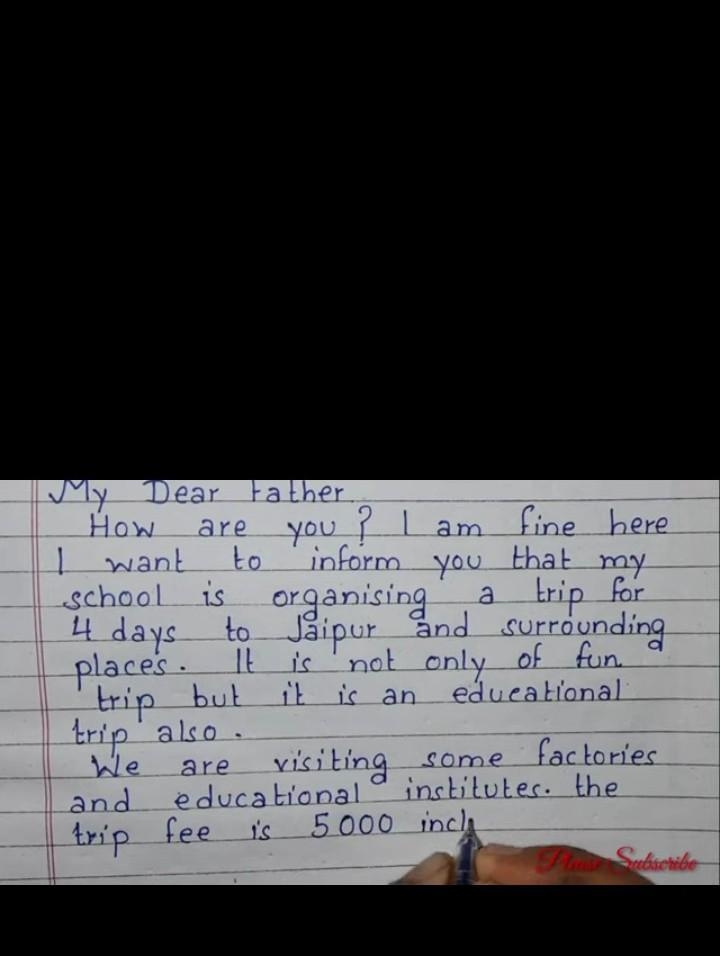 My Dear Father.
How are you ? I am fine here
I want to inform you that my
school is organising a trip for
4 days to Jaipur and surrounding
places. It is not only of fun
trip but it is an educational
trip also.
We are visiting some factories
and educational institutes. the
trip fee is 5000 incl
Please Subscribe